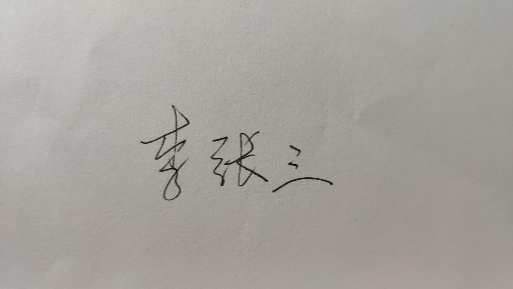 李张三